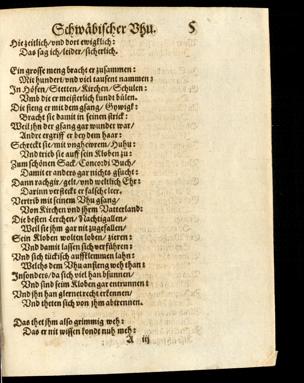 Schwäbischer Vhu. 5
Hie zeitlich/vnd dort ewigklich:
Das sag ich/leider/sicherlich.
Ein grosse meng bracht er zusammen:
Mit hundert/vnd viel tausent nammen:
In Höfen/Stetten/Kirchen/Schulen:
Vmb die er meisterlich kundt bůlen.
Die fieng er mit dem gsang/
Bracht sie damit in seinen strick:
Weil jhn der gsang gar wunder war/
Ander ergriff er bey dem haar:
Schreckt sie/mit vngheweren/Huhu:
Vnd trieb sie auff sein Kloben zu:
Zum schönen Sack/Concordi Buch/
Damit er anders gar nichts gsucht:
Dann nachgir/gelt/vnd weltlich Ehr:
Darinn versteckt er falsche leer,
Vertrib mit seinem Vhu gsang/
Von Kirchen vnd jhrem Vatterland:
Die besten Lerchen/Nachtigallen/
Weil sie jhm gar nit zugefallen/
Sein Kloben wolten loben/zieren:
Vnd damit lassen sich verführen:
Vnd sich tückisch auffklemmen lahn:
Welchs dem Vhu anfieng weh than:
Insonders/da sich viel han bsunnen/
Vnd sind seim Kloben gar entrunnen:
Vnd jhn han glernet recht erkennen/
Vnd theten sich von jhm abtrennen.
Das thet jhm also grimmig weh:
Das er nit wissen kondt nuh meh:
A iij